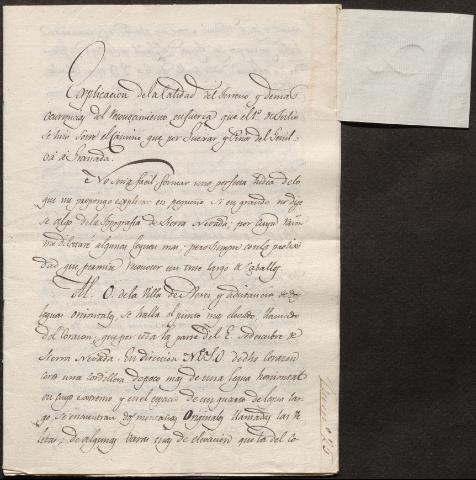 Explicacion de la Calidad del terreno y demas
ocurrencias del reconocimiento en fuerza que el 1º de Julio
se hizo sobre el Camino que por Guexar y Pinos del Genil
vá á Granada.
No seria facil formar una perfecta idea de lo
que me propongo explicar en pequeño si en grande no dije
se algo de la topografia de Sierra Nevada; por cuya razon
me dilatare algunas lineas mas; pero siempre con la proli
dad que permite reconocer un trozo largo á Caballo.
Al O. de la Villa de y a distancia de
leguas orientales se halla el punto mas elevado, llamado
del Corazon, que por esta la parte del E. se descubre de
Sierra Nevada. En direccion NE. SO. de dho corazon
corre una cordillera de poco mas de una legua horizontal
en cuyo extremo y en el espacio de un quarto de legua lar
go se encuentran dos montañas Originales llamadas las
letas, de algunas varas mas de elevacion que la del Co